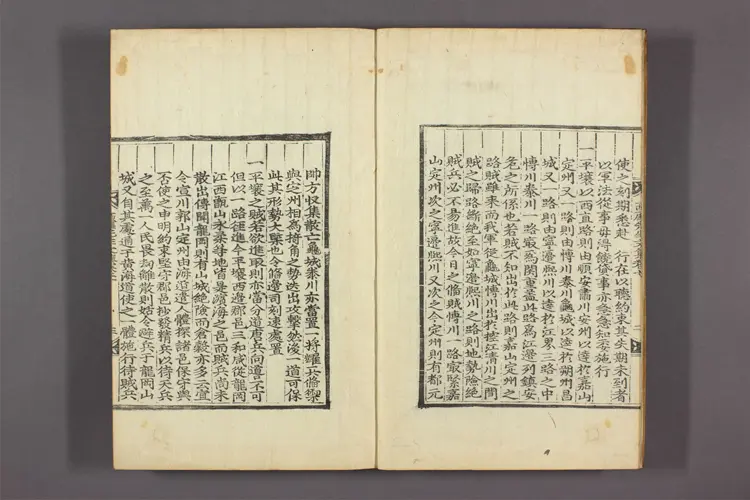 使之刻期悉赴 行在以聽約束其失期未到者
以軍法從事毋得饒貸事亦急急知委施行
一平壤以西直路則由順安肅川安州以達於嘉山
定州又一路則由博川泰川龜城以達於朔州昌
城又一路則由寧邊熙川以達於江界三路之中
博川泰川一路最爲關重蓋此路爲江邊列鎭安
危之所係也若賊不知出於此路則嘉山定州之
路賊雖來而我軍從龜城博川出於控江清川之間
賊之歸路絶至如寧邊熙川之路則地勢險絶
賊兵必不易進故今日之備賊博川一路最緊嘉
山定州次之寧邊熙川又次之今定州則有都元
帥方收集散亡龜城泰川亦當置一將糧兵備禦
與定州相爲掎角之勢迭出攻擊然後一道可保
此其形勢大槩也令備邊司刻速處置
一平壤之賊若欲進取則亦當分道唐兵向道不可
但以一路徑進今平壤西邊郡邑三和咸從龍岡
江西甑山永柔等地皆暑濱海之邑而賊兵尚未
散出傳聞龍岡則有山城絶險而倉穀亦多云宣
令宣川郭山定州由海道遣人體探諸邑保守與
否使之申明約束堅守郡邑抄發精兵以待天兵
之至萬一人民畏劫離散則姑令避兵于龍岡山
城又自其處通于黃海道使之一體施行待賊兵